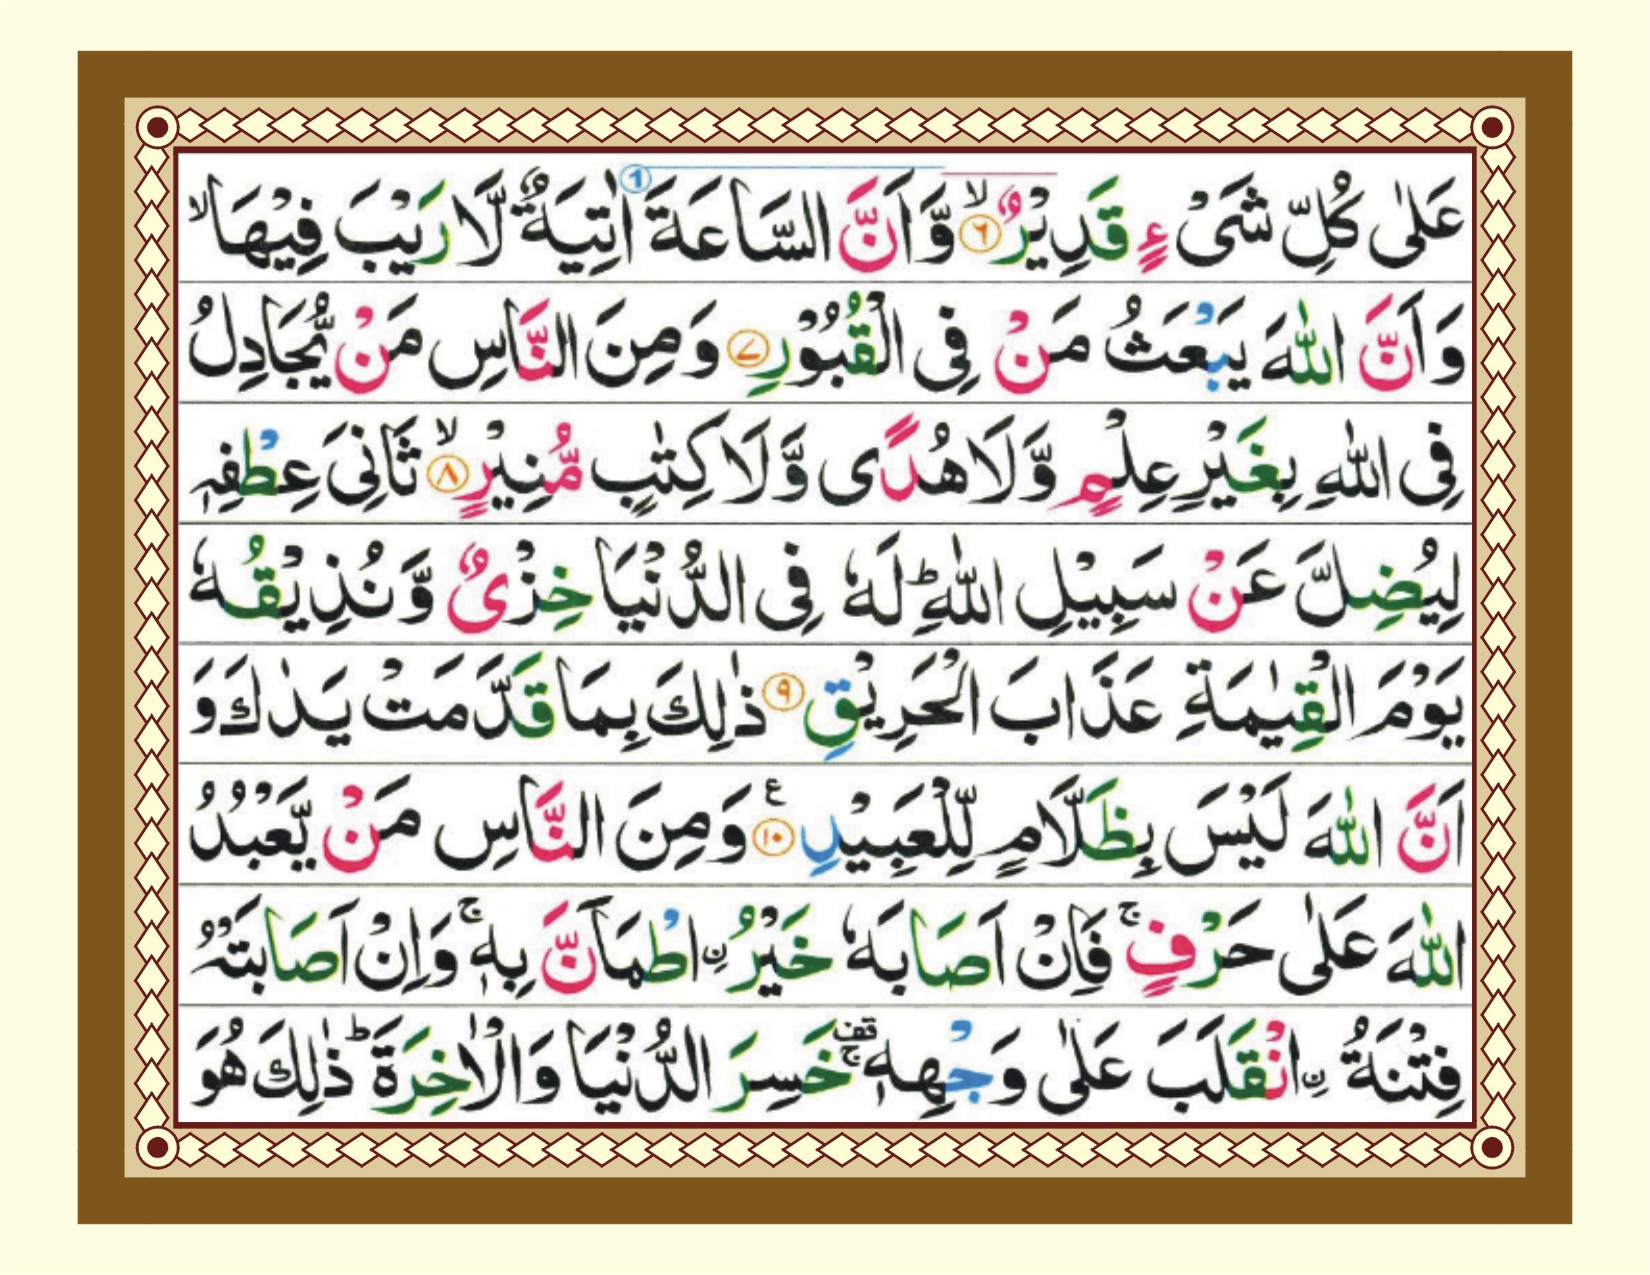 عَلٰى كُلِّ شَىْءٍ قَدِيْرٌ ۙ‏﴿۶﴾ وَّاَنَّ السَّاعَةَ اٰتِيَةٌ لَّا رَيْبَ فِيْهَا ۙ
وَاَنَّ اللّٰهَ يَبْعَثُ مَنْ فِى الْقُبُوْرِ ﴿۷﴾ وَمِنَ النَّاسِ مَنْ يُّجَادِلُ
فِى اللّٰهِ بِغَيْرِ عِلْمٍ وَّلَا هُدًى وَّلَا كِتٰبٍ مُّنِيْرٍ ۙ‏﴿۸﴾ ثَانِىَ عِطْفِهٖ
لِيُضِلَّ عَنْ سَبِيْلِ اللّٰهِ ؕ لَهٗ فِى الدُّنْيَا خِزْىٌ وَّنُذِيْقُهٗ
يَوْمَ الْقِيٰمَةِ عَذَابَ الْحَرِيْقِ ﴿۹﴾ ذٰلِكَ بِمَا قَدَّمَتْ يَدٰكَ وَ
اَنَّ اللّٰهَ لَيْسَ بِظَلَّامٍ لِّلْعَبِيْدِ ﴿۱۰﴾ ع وَمِنَ النَّاسِ مَنْ يَّعْبُدُ
اللّٰهَ عَلٰى حَرْفٍ ۚ فَاِنْ اَصَابَهٗ خَيْرُ ن ِاطْمَاَنَّ بِهٖ ۚ وَاِنْ اَصَابَتْهُ
فِتْنَةُ ن ِانْقَلَبَ عَلٰى وَجْهِهٖ ۚ قف خَسِرَ الدُّنْيَا وَالْاٰخِرَةَ ؕ ذٰلِكَ هُوَ